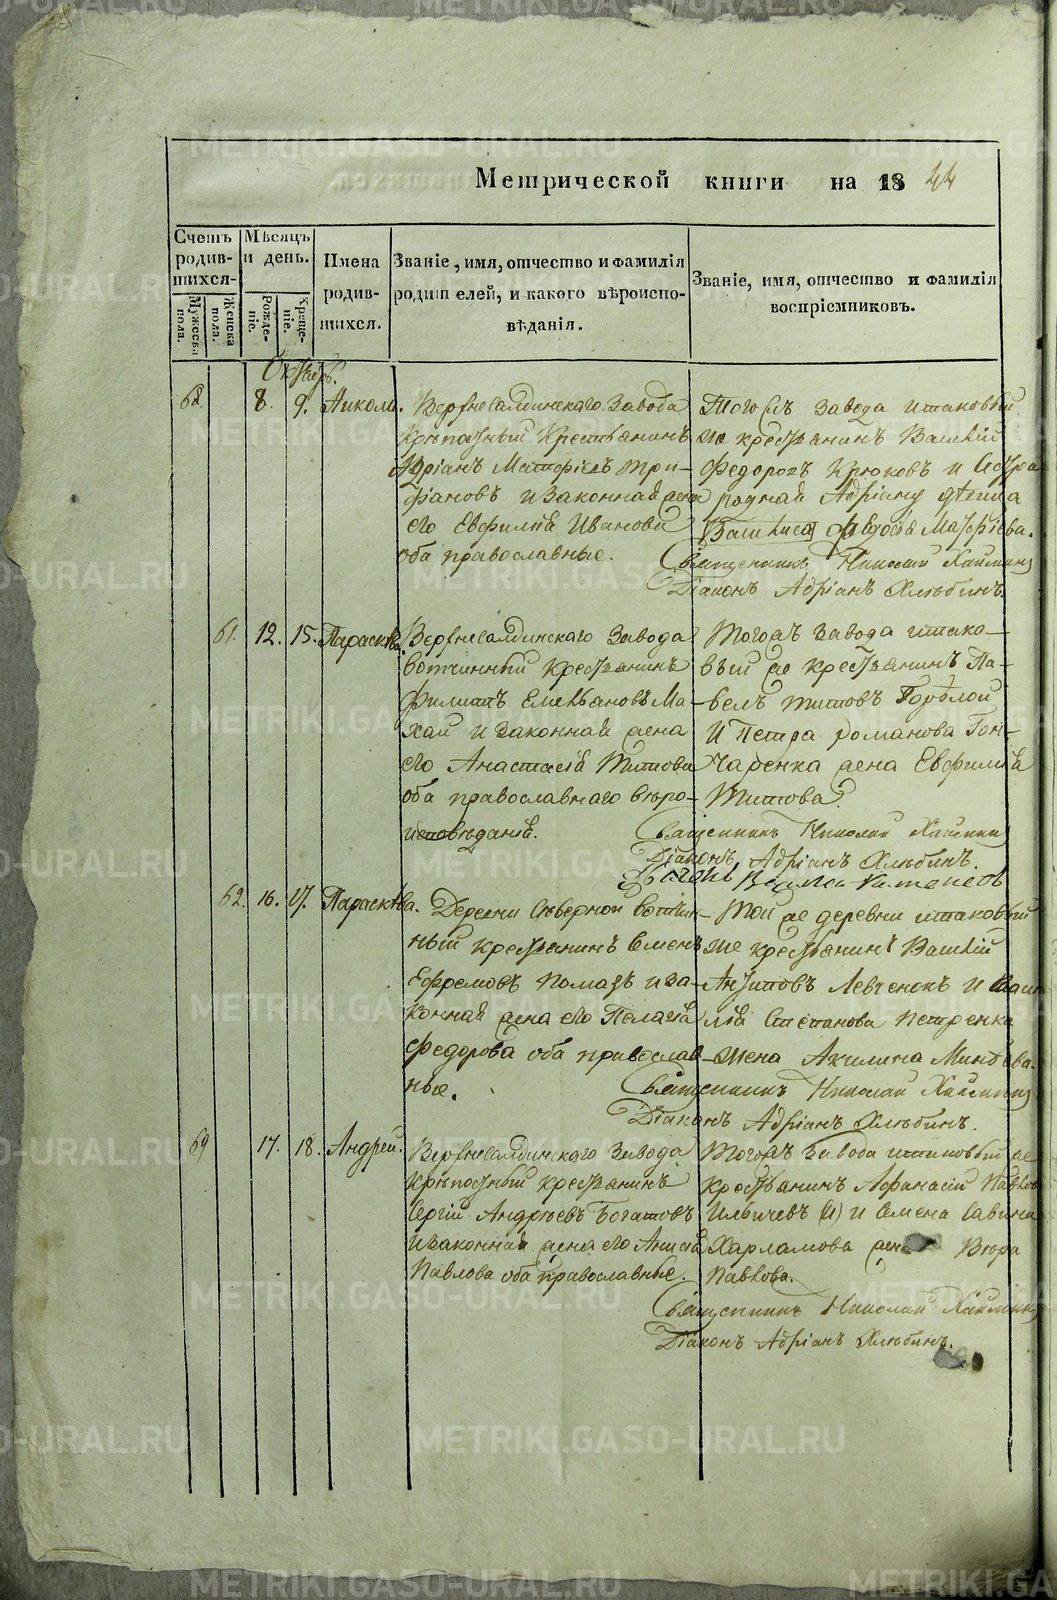 Метрической книги на 18 44
Счетъ родив-шихся.
Мужеска пола.
Женска пола.
Мѣсяцъ и день.
Рожде-ніе.
Креще-ніе.
Имена родив-шихся.
Званіе, имя, отчество и фамилія
родителей, и какого вѣроиспо-
вѣданія.
Званіе, имя, отчество и фамилія
воспріемниковъ.
Октябрь.
68. 8. 9. Николай.
Верхнесалдинскаго Завода
крѣпостный крестьянинъ
Адріанъ Матфіевъ Три-
фановъ и законная жена
его Евфимія Иванова
оба православные.
Тогожъ завода и таковый
же крестьянинъ Василій
Федоровъ Крюковъ и сестра
родная Адріану девица
Василиса Федосья Матфіева.
Священникъ Николай
Діаконъ Адріанъ Хлюбинъ.
61. 12. 15. Параскева.
Верхнесалдинскаго Завода
вотчинный крестьянинъ
Филипъ Емельяновъ Ма-
хай и законная жена
его Анастасія Титова
оба православнаго вѣро-
исповѣданія.
Тогожъ завода и тако-
вый же крестьянинъ Па-
велъ Титовъ
и Петра Романова Гон-
чаренка жена Евфимія
Титова.
Священникъ Николай
Діаконъ Адріанъ Хлюбинъ.
62. 16. 17. Параскева.
Деревни Северной вотчин-
ный крестьянинъ Семенъ
Ефремовъ Помазъ и за-
конная жена его Пелагея
Федорова оба православ-
ные.
Той же деревни и таковый
же крестьянинъ Василій
Антиповъ Левченокъ и Васи-
лья Степанова Петренка
жена Акилина Минѣева.
Священникъ Николай
Діаконъ Адріанъ Хлюбинъ.
69 17. 18. Андрей.
Верхнесалдинскаго Завода
крѣпостный крестьянинъ
Сергій Андреевъ Богатовъ
и законная жена его Анисья
Павлова оба православные.
Тогожъ завода и таковый же
крестьянинъ Афанасій Павловъ
Ильичевъ и Семена Савина
Харламова жена Вѣра
Павлова.
Священникъ Николай
Діаконъ Адріанъ Хлюбинъ.
METRIKI.GASO-URAL.RU